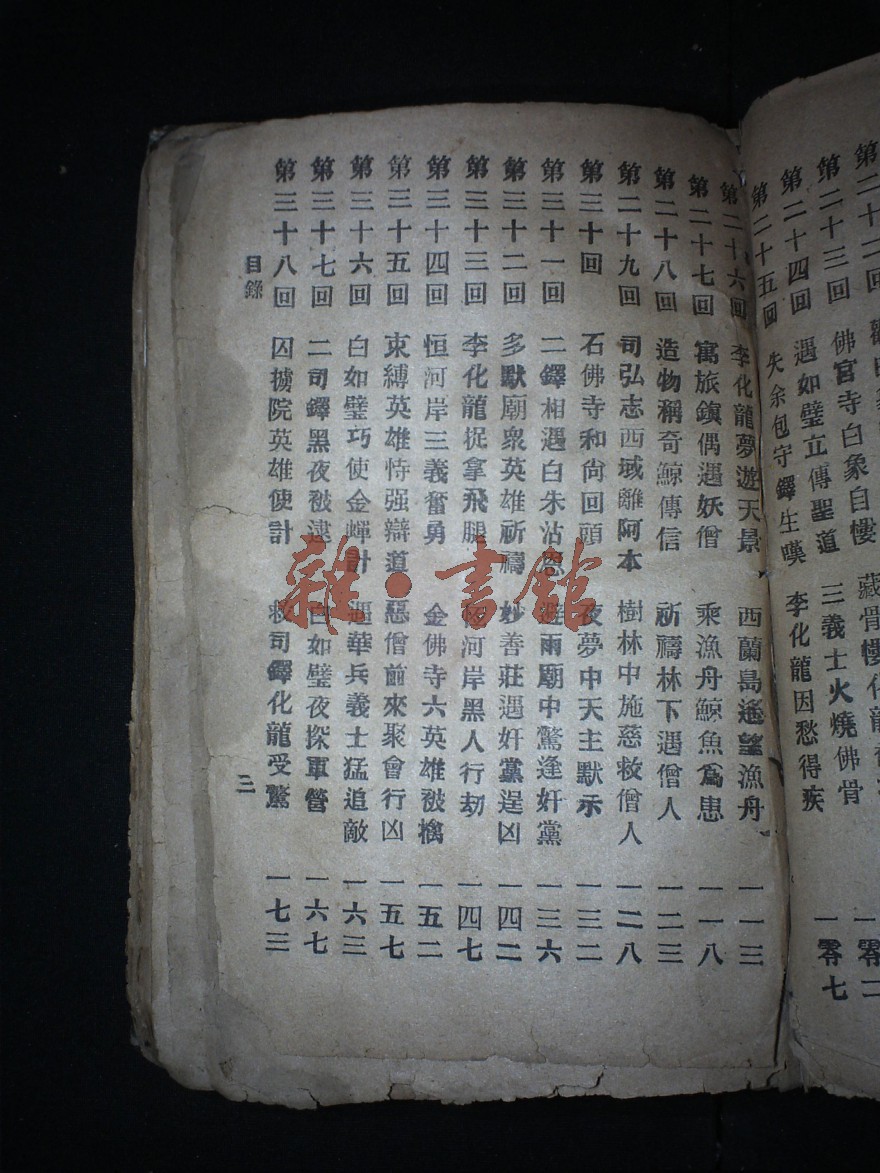 第二十三回
佛官寺白象自慺
三義士火燒佛骨
一零二
第二十四回
遇如璧立傳聖道
李化龍因愁得疾
一零七
第二十五回
失余包守鐸生嘆
第二十六回 李化龍夢遊天景 西蘭島遙望漁舟 一一三
第二十七回 寓旅鎮偶遇妖僧 乘漁舟鯨魚爲患 一一八
第二十八回 造物稱奇鯨傳信 祈禱林下遇僧人 一二三
第二十九回 司弘志西域離阿本 樹林中施慈救僧人 一二八
第三十回 石佛寺和尙回頭 夜夢中天主默示 一三二
第三十一回 二鐸相遇白朱沾恩 避雨廟中驚逢奸黨 一三六
第三十二回 多默廟衆英雄祈禱 妙善莊遇奸黨逞凶 一四二
第三十三回 李化龍捉拿飛腿 河岸黑人行刧 一四七
第三十四回 恒河岸三義奮勇 金佛寺六英雄被擒 一五二
第三十五回 束縛英雄恃强辯道 惡僧前來聚會行凶 一五七
第三十六回 白如璧巧使金蟬計 遇華兵義士猛追敵 一六三
第三十七回 二司鐸黑夜被逮 白如璧夜探軍營 一六七
第三十八回 囚擄院英雄使計 救司鐸化龍受驚 一七三
目錄
三
雜·書館